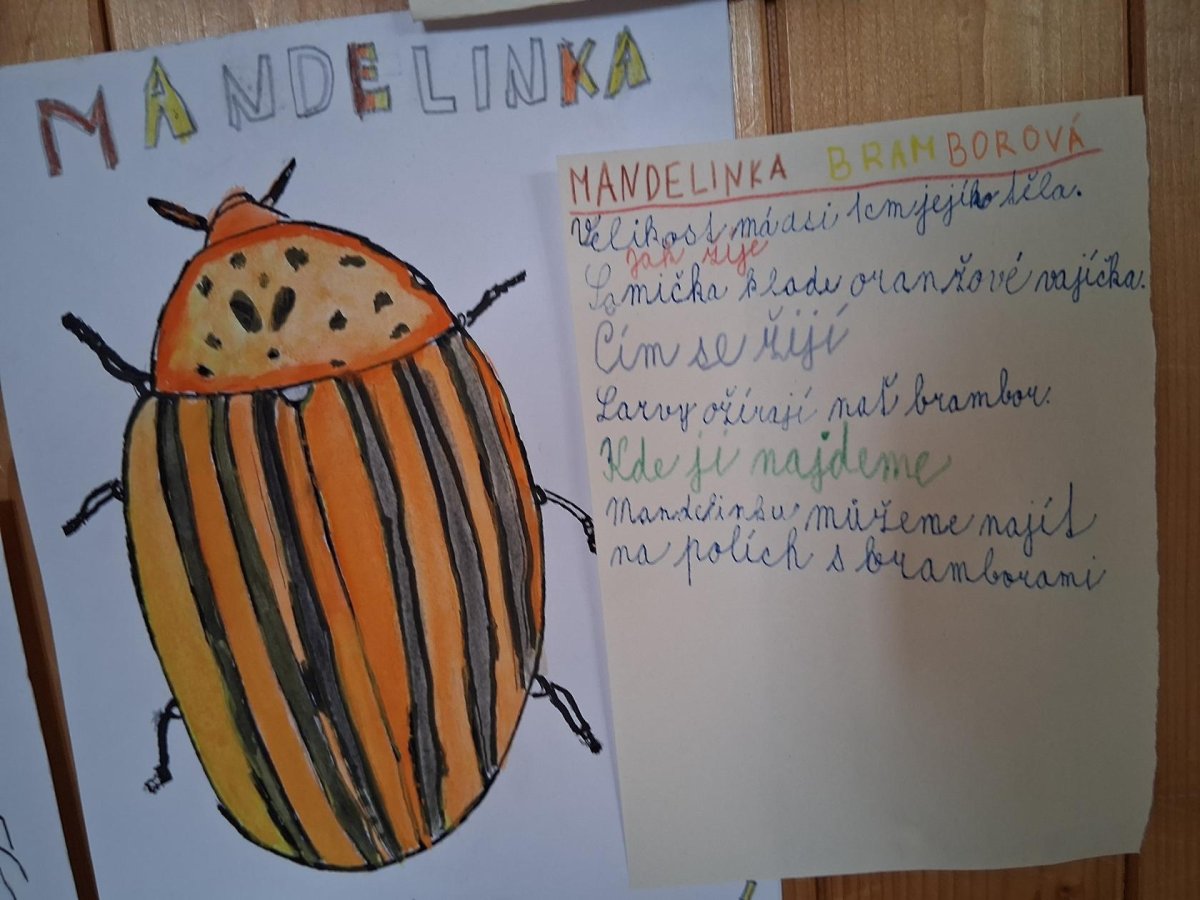 MANDELINKA
MANDELINKA BRAMBOROVÁ
Velikost má asi 1cm jejího těla.
Jak žije
Samička klade oranžové vajíčka.
Čím se žijí
Larvy ožírají nať brambor.
Kde ji najdeme
Mandelinku můžeme najít
na polích s bramborami